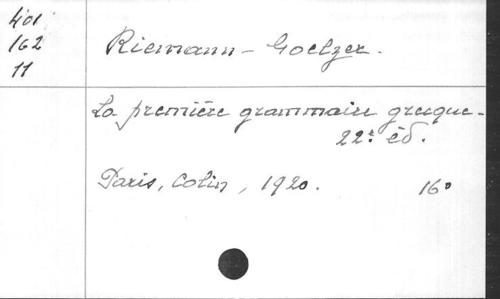 401
162
11
Riemann - Goelzer.
La première grammaire grecque.
22e éd.
Paris, Colin, 1920. 16°